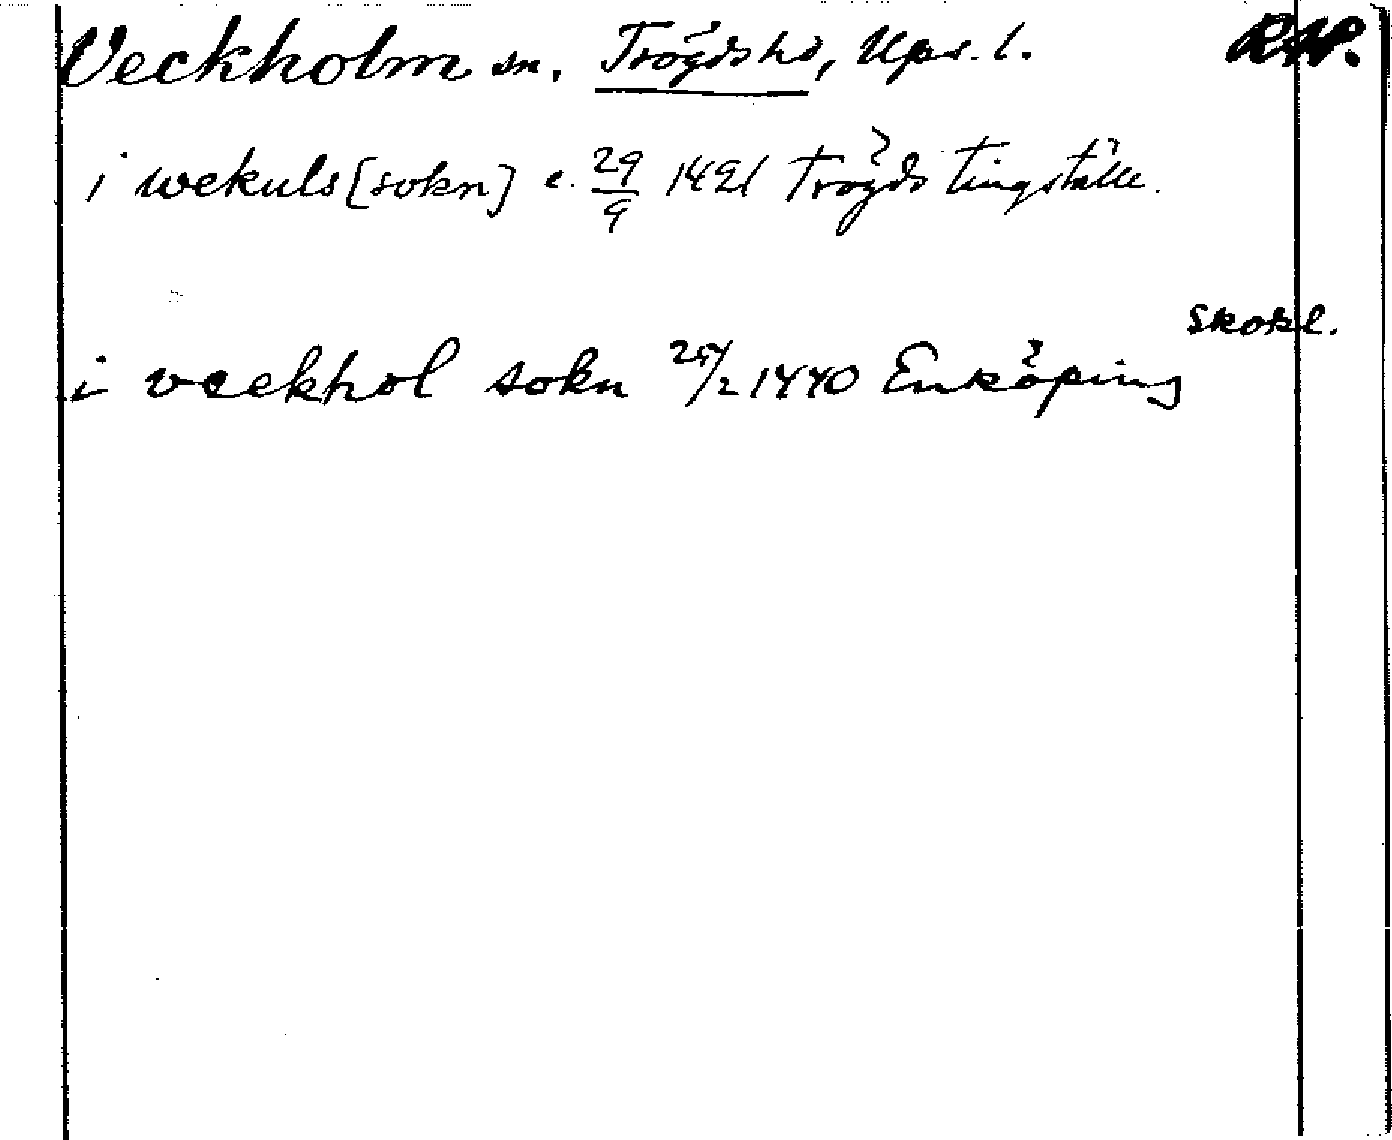 Veckholm sn. Trögds hd, Upps. l. RAP.
i wekuls [sokn] c. 29/9 1421 Trögds tingställe.
Skokl.
i veekhol sokn 25/2 1440 Enköping